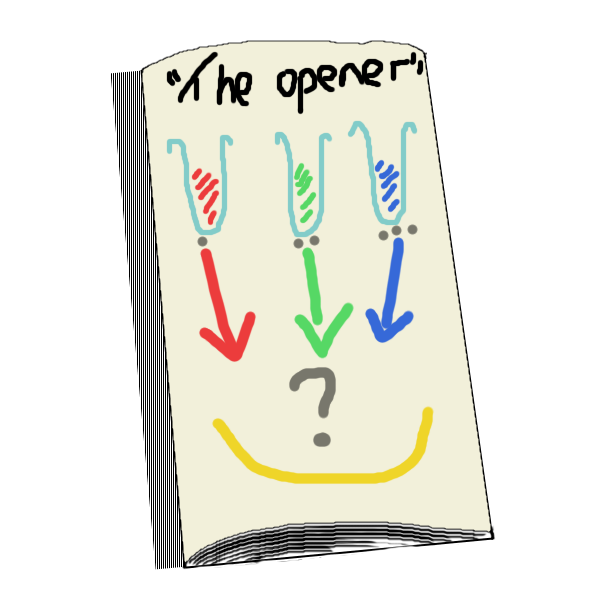 "The opener"
?